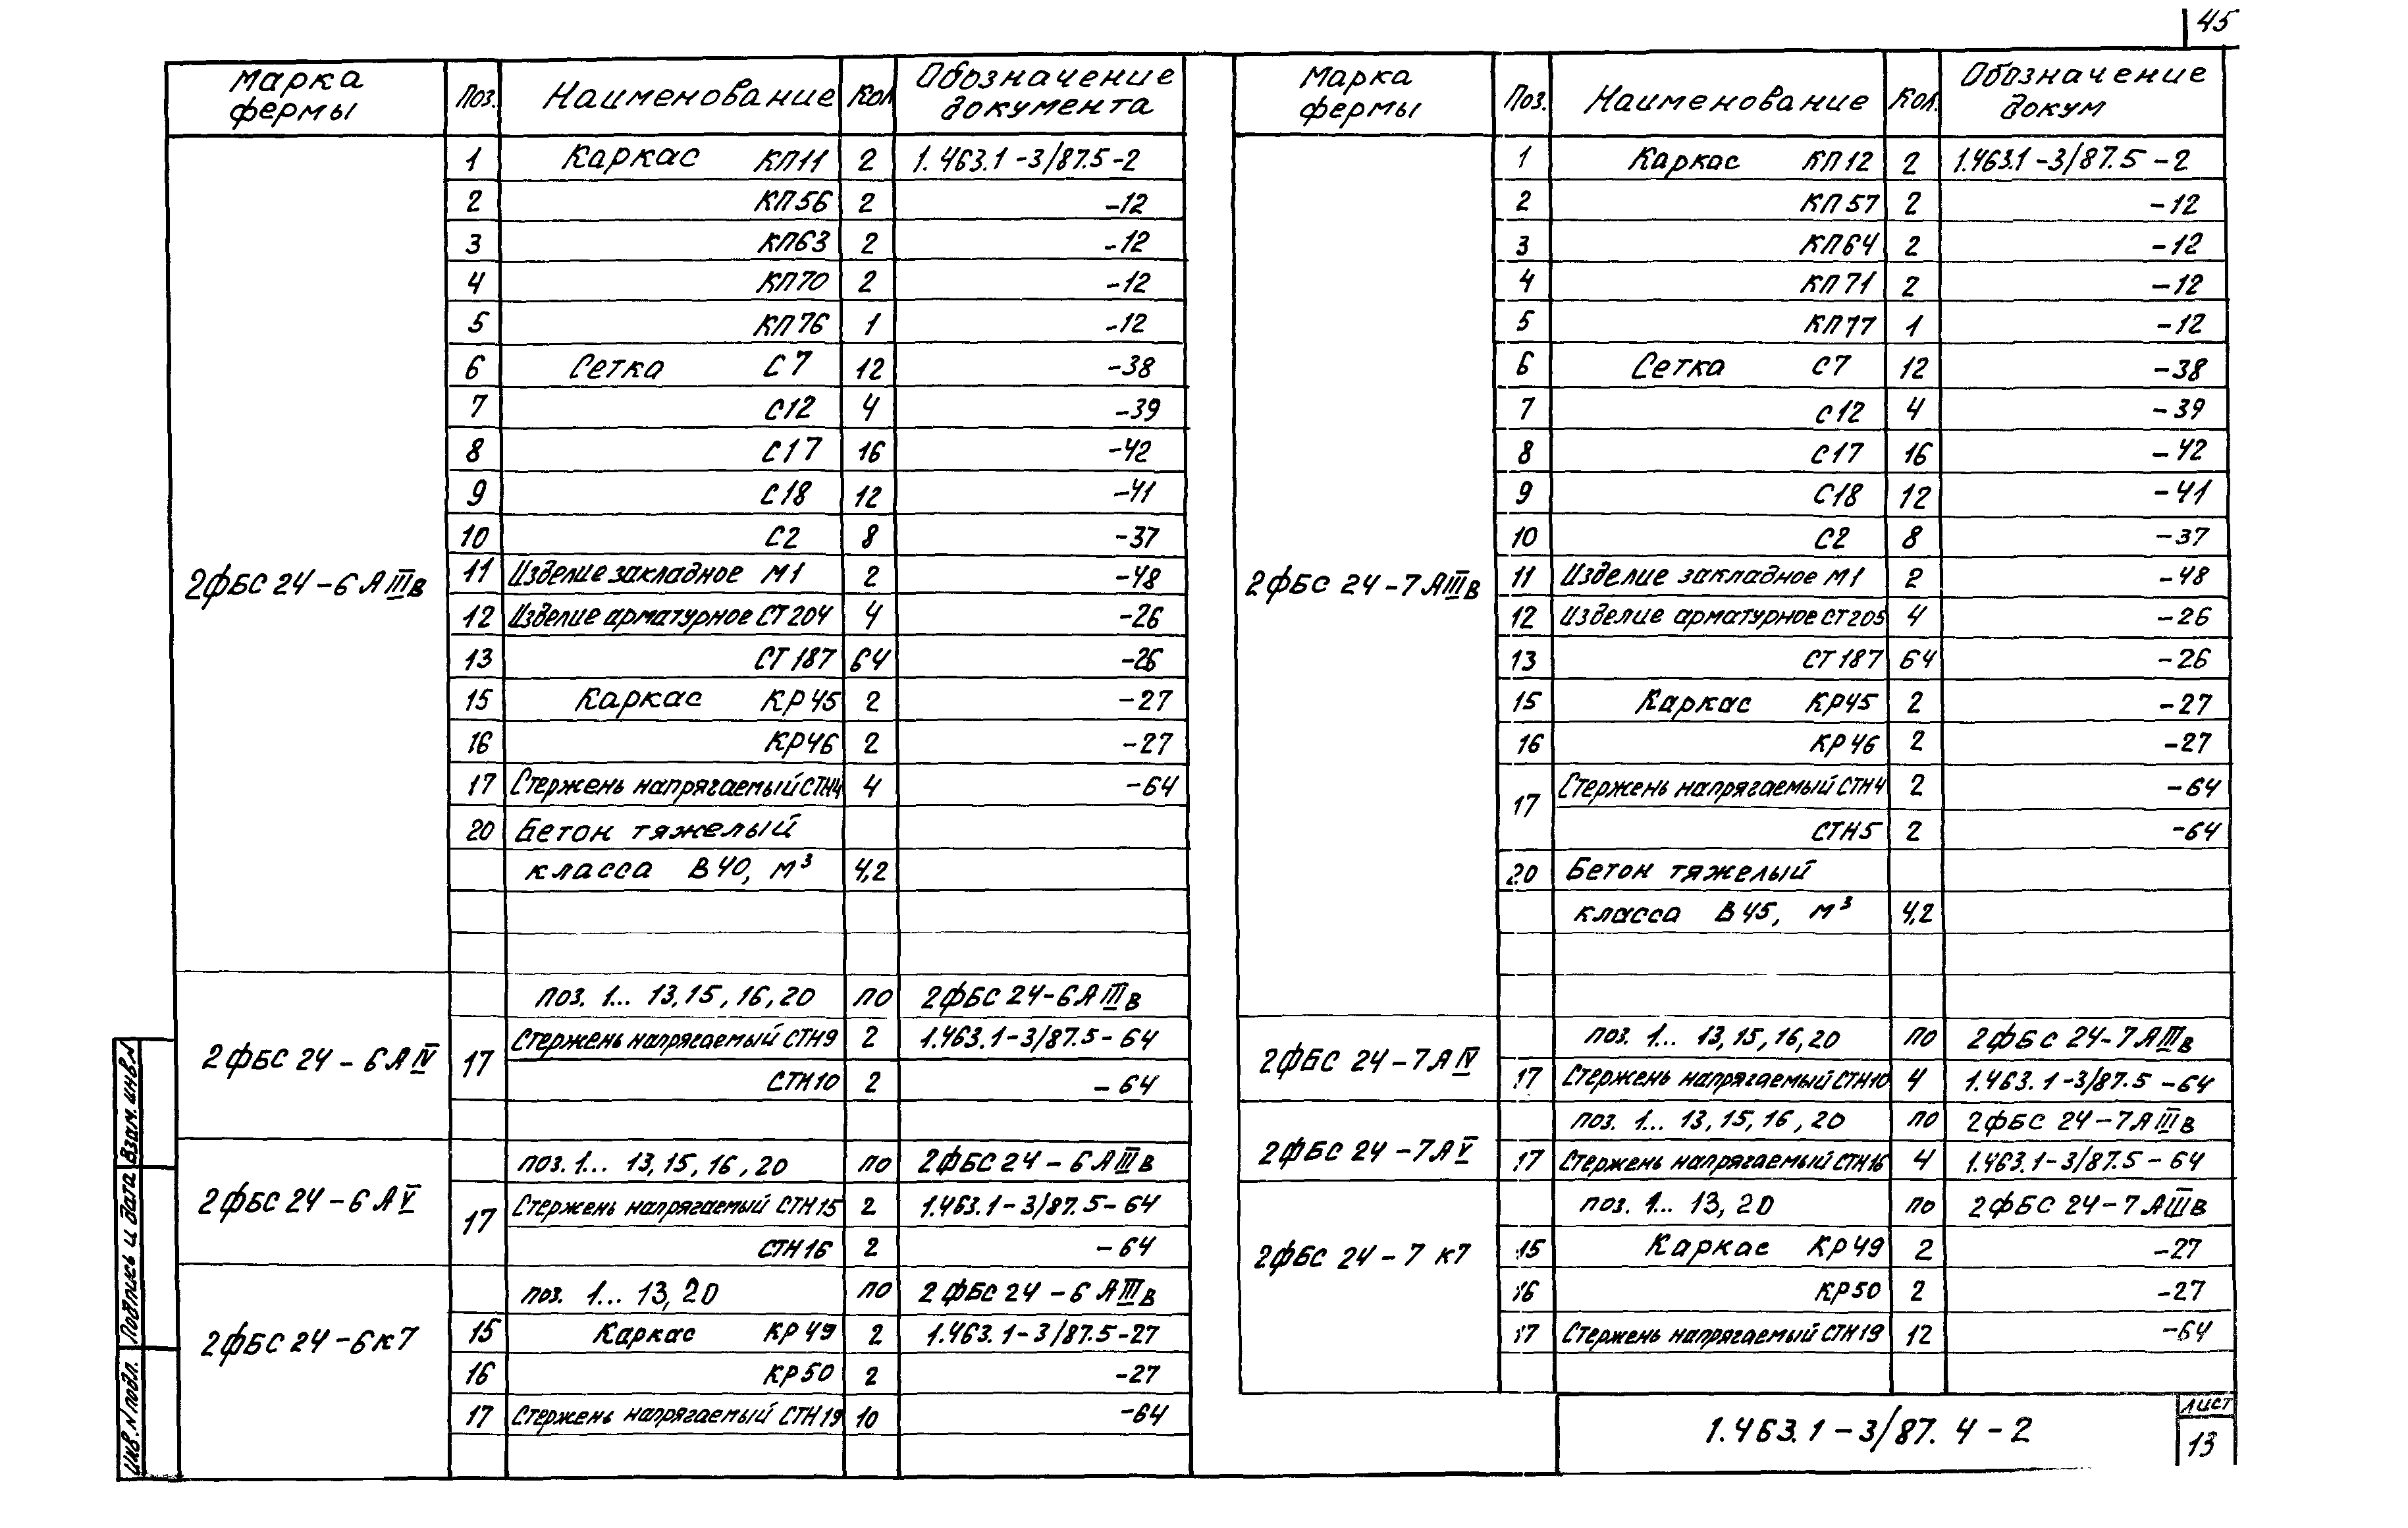 45
Марка фермы Поз. Наименование Кол Обозначение документа
2ФБС 24-6 АIIIв
1 Каркас КП11 2 1.463.1-3/87.5-2
2 КП56 2 -12
3 КП63 2 -12
4 КП70 2 -12
5 КП76 1 -12
6 Сетка С7 12 -38
7 С12 4 -39
8 С17 16 -42
9 С18 12 -41
10 С2 8 -37
11 Изделие закладное М1 2 -48
12 Изделие арматурное СТ204 4 -26
13 СТ187 64 -26
15 Каркас КР45 2 -27
16 КР46 2 -27
17 Стержень напрягаемый СТН4 4 -64
20 Бетон тяжелый
класса В40, м³ 4,2
2ФБС 24-6 АIV
поз. 1... 13, 15, 16, 20 по 2ФБС 24-6 АIIIв
17 Стержень напрягаемый СТН9 2 1.463.1-3/87.5-64
СТН10 2 -64
2ФБС 24-6 АV
поз. 1... 13, 15, 16, 20 по 2ФБС 24-6 АIIIв
17 Стержень напрягаемый СТН15 2 1.463.1-3/87.5-64
СТН16 2 -64
2ФБС 24-6к7
поз. 1... 13, 20 по 2ФБС 24-6 АIIIв
15 Каркас КР49 2 1.463.1-3/87.5-27
16 КР50 2 -27
17 Стержень напрягаемый СТН19 10 -64
Марка фермы Поз. Наименование Кол. Обозначение докум
2ФБС 24-7 АIIIв
1 Каркас КП12 2 1.463.1-3/87.5-2
2 КП57 2 -12
3 КП64 2 -12
4 КП71 2 -12
5 КП77 1 -12
6 Сетка С7 12 -38
7 С12 4 -39
8 С17 16 -42
9 С18 12 -41
10 С2 8 -37
11 Изделие закладное М1 2 -48
12 Изделие арматурное СТ205 4 -26
13 СТ187 64 -26
15 Каркас КР45 2 -27
16 КР46 2 -27
17 Стержень напрягаемый СТН4 2 -64
СТН5 2 -64
20 Бетон тяжелый
класса В45, м³ 4,2
2ФБС 24-7 АIV
поз. 1... 13, 15, 16, 20 по 2ФБС 24-7 АIIIв
17 Стержень напрягаемый СТН10 4 1.463.1-3/87.5-64
2ФБС 24-7 АV
поз. 1... 13, 15, 16, 20 по 2ФБС 24-7 АIIIв
17 Стержень напрягаемый СТН16 4 1.463.1-3/87.5-64
2ФБС 24-7 к7
поз. 1... 13, 20 по 2ФБС 24-7 АIIIв
15 Каркас КР49 2 -27
16 КР50 2 -27
17 Стержень напрягаемый СТН19 12 -64
1.463.1-3/87.4-2
лист
13
Взам. инв. N
Подпись и дата
Инв. N подл.